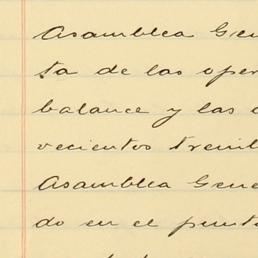 Asamblea Gene
ta de las oper
balance y las
vecientos trein
Asamblea Gene
do en el punto